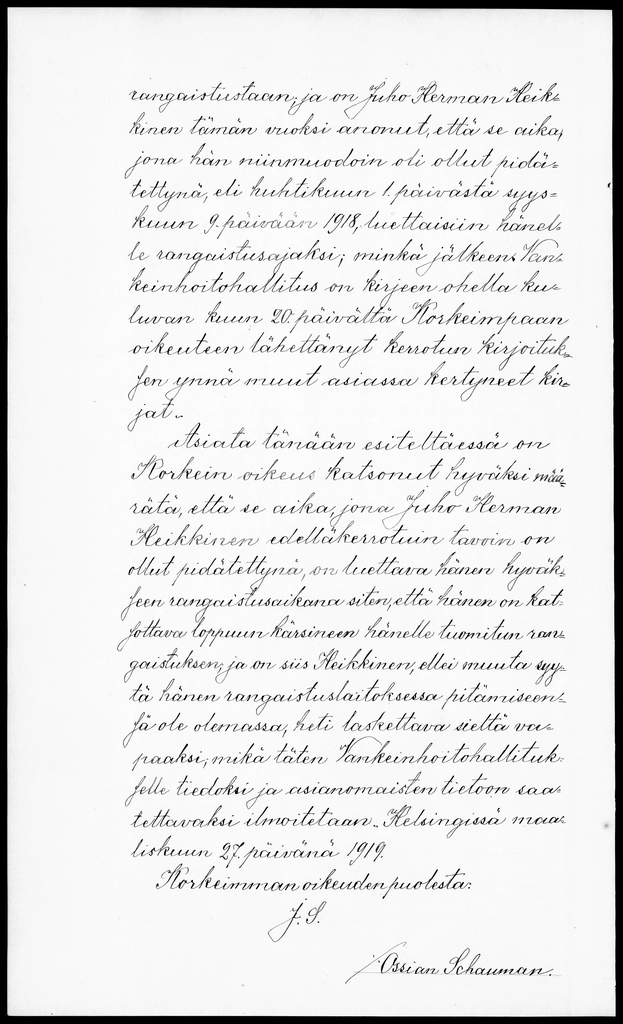 rangaistustaan; ja on Juho Herman Heik-
kinen tämän vuoksi anonut, että se aika,
jona hän niinmuodoin oli ollut pidä-
tettynä, eli huhtikuun 1. päivästä syys-
kuun 9. päivään 1918, luettaisiin hänel-
le rangaistusajaksi; minkä jälkeen Van-
keinhoitohallitus on kirjeen ohella ku-
luvan kuun 20. päivältä Korkeimpaan
oikeuteen lähettänyt kerrotun kirjoituk-
sen ynnä muut asiassa kertyneet kir-
jat.
Asiata tänään esiteltäessä on
Korkein oikeus katsonut hyväksi mää-
rätä, että se aika, jona Juho Herman
Heikkinen edelläkerrotuin tavoin on
ollut pidätettynä, on luettava hänen hyväk-
seen rangaistusaikana siten, että hänen on kat-
sottava loppuun kärsineen hänelle tuomitun ran-
gaistuksen; ja on siis Heikkinen, ellei muuta syy-
tä hänen rangaistuslaitoksessa pitämiseen-
sä ole olemassa, heti laskettava sieltä va-
paaksi; mikä täten Vankeinhoitohallituk-
selle tiedoksi ja asianomaisten tietoon saa-
tettavaksi ilmoitetaan. Helsingissä maa-
liskuun 27. päivänä 1919.
Korkeimman oikeuden puolesta:
J. S.
Ossian Schauman.